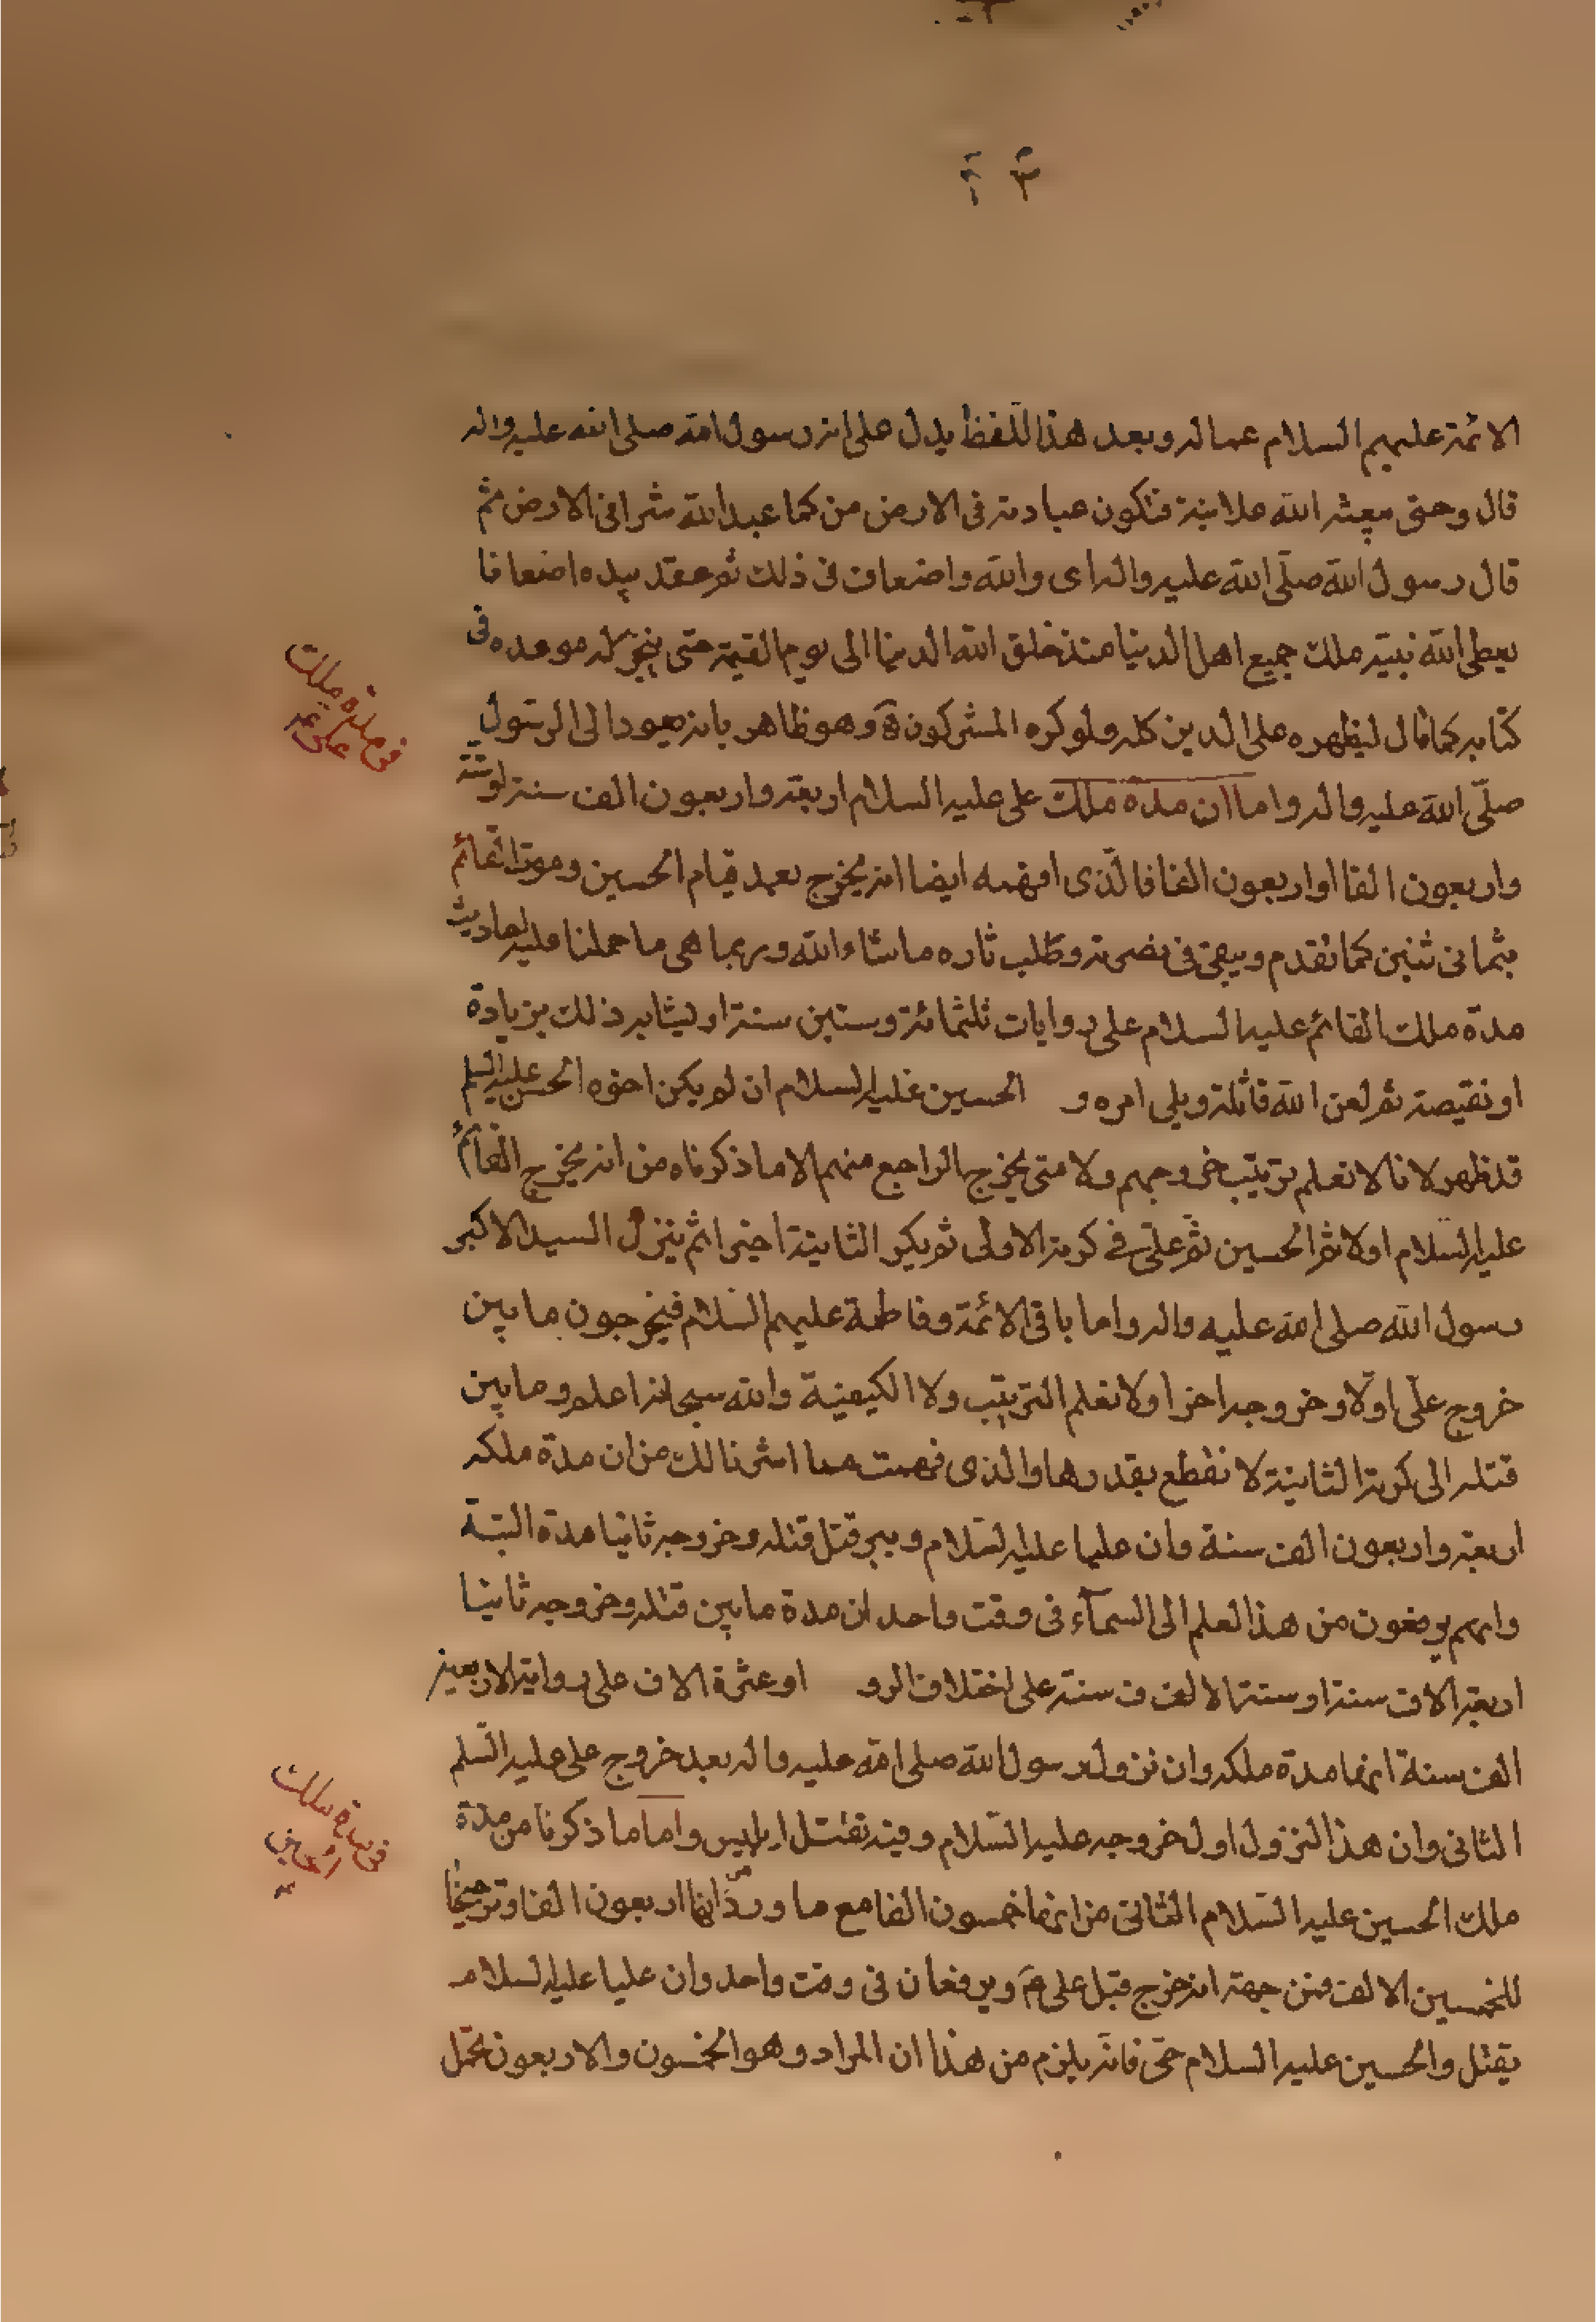 الائمة عليهم السلام عماله وبعد هذا اللفظ يدل على انه رسول الله صلى الله عليه واله
قال وحتى يبعثه الله علانية فتكون عبادته فى الارض من كما عبد الله سرا فى الارض ثم
قال رسول الله صلّى الله عليه واله اى والله واضعاف فى ذلك ثم عقد بيده اضعافا
يعطى الله نبيّه ملك جميع اهل الدنيا منذ خلق الله الدنيا الى يوم القيمة حتى ينجز له موعده فى
كتابه كما قال ليظهره على الدين كله ولو كره المشركون وهو ظاهر بانه يعود الى الرسول
صلّى الله عليه واله واما ان مدة ملك على عليه السلام اربعة واربعون الف سنة او ستة
واربعون الفا او اربعون الفا فالّذى افهمه ايضا انه يخرج بعد قيام الحسين وموت القائم
بثمانى سنين كما تقدم ويبقى فى نصرته وطلب ثاره ما شاء الله وربما هى ما حملنا عليه احاديث
مدة ملك القائم عليه السلام على روايات ثلثمائة وستين سنة او يشابه ذلك بزيادة
او نقيصة ثم لعن الله قاتله ويلى امره و الحسين عليه السلام ان لم يكن اخوه الحسن عليه السلم
قد ظهر لانا لا نعلم ترتيب خروجهم ولا متى يخرج الراجع منهم الا ما ذكرناه من انه يخرج القائم
عليه السلام اولا ثم الحسين ثم على فى كرته الاولى ثم يكر الثانية اخيرا ثم ينزل السيد الاكبر
رسول الله صلى الله عليه واله واما باقى الائمة وفاطمة عليهم السلام فيخرجون ما بين
خروج على اوّلا وخروجه اخرا ولا نعلم الترتيب ولا الكيفية والله سبحانه اعلم وما بين
قتله الى كرته الثانية لا نقطع بقدرها والذى فهمت مما اشرنا لك من ان مدة ملكه
اربعة واربعون الف سنة وان عليا عليه السلام وبين قتل قتله وخروجه ثانيا مدة البتة
وانهم يرفعون من هذا العلم الى السماء فى وقت واحد ان مدة ما بين قتله وخروجه ثانيا
اربعة الاف سنة او ستة الالف ف سنة على اختلاف الرو او عشرة الاف على رواية الاربعين
الف سنة انها مدة ملكه وان نزول رسول الله صلى الله عليه واله بعد خروج على عليه السلم
الثانى وان هذا النزول اول خروجه عليه السلام وفيه يقتل ابليس واما ما ذكرنا من مدة
ملك الحسين عليه السلام الثانى من انها خمسون الفا مع ما ورد من انها اربعون الفا وترجيحنا
للخمسين الالف فمن جهة انه خرج قبل على ع ويرفعان فى وقت واحد وان عليا عليه السلام
يقتل والحسين عليه السلام حى فانه يلزم من هذا ان المراد وهو الخمسون والاربعون تحمل
فى مدة ملك
على ع
فى مدة ملك
الحسين
ع